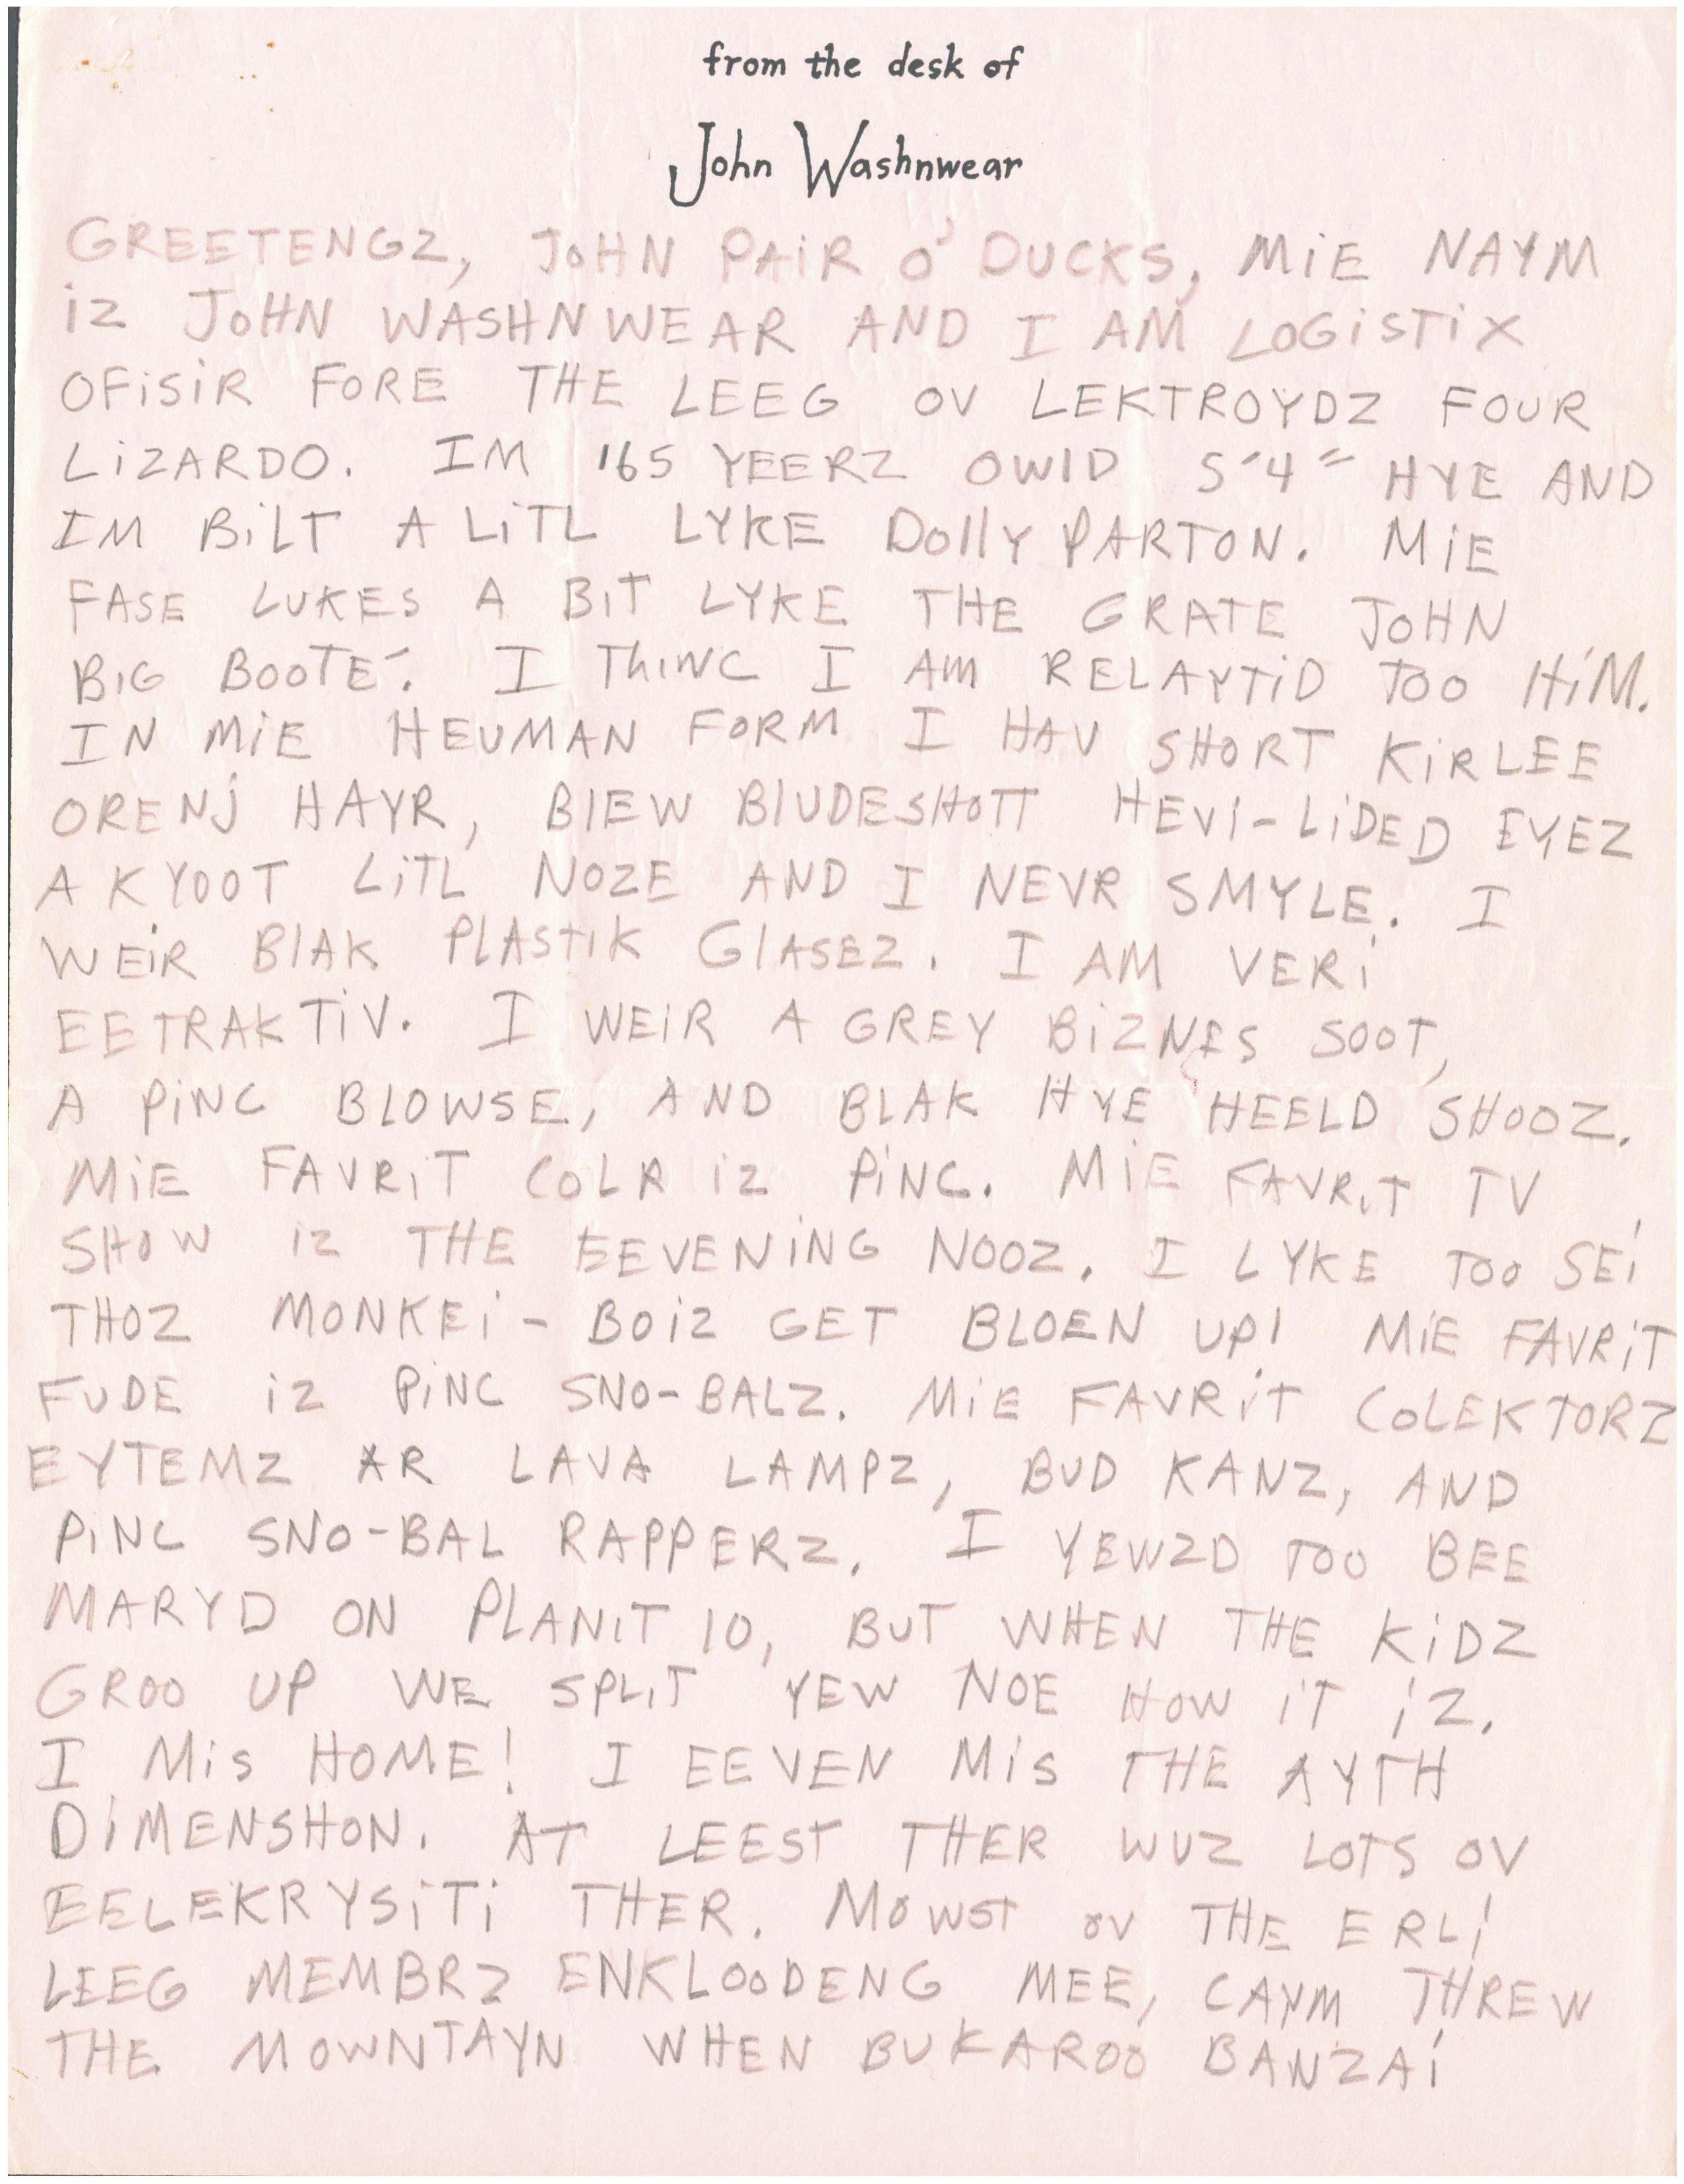 from the desk of
John Washnwear
GREETENGZ, JOHN PAiR O' DUCKS, MiE NAYM
iZ JOHN WASHNWEAR AND I AM LOGiSTiX
OFiSiR FORE THE LEEG OV LEKTROYDZ FOUR
LiZARDO. IM 165 YEERZ OWlD 5'4" HYE AND
IM BiLT A LiTL LYKE Dolly PARTON. MiE
FASE LUKES A BiT LYKE THE GRATE JOHN
BIG BOOTE´. I ThiNC I AM RELAYTiD TOO HiM.
IN MiE HEUMAN FORM I HAV SHORT KiRLEE
ORENj HAYR, BlEW BlUDESHOTT HEVi-LiDED EYEZ
A KYOOT LiTL NOZE AND I NEVR SMYLE. I
WEiR BlAK PlASTiK GlASEZ. I AM VERi
EETRAKTiV. I WEiR A GREY BiZNES SOOT,
A PiNC BLOWSE, AND BLAK HYE HEELD SHOOZ.
MiE FAVRiT COLR iZ PiNC. MiE FAVRiT TV
SHOW iZ THE EEVENiNG NOOZ. I LYKE TOO SEi
THOZ MONKEi-BOiZ GET BLOEN UP! MiE FAVRiT
FUDE iZ PiNC SNO-BALZ. MiE FAVRiT COLEKTORZ
EYTEMZ AR LAVA LAMPZ, BUD KANZ, AND
PiNC SNO-BAL RAPPERZ. I YEWZD TOO BEE
MARYD ON PLANiT 10, BUT WHEN THE KiDZ
GROO UP WE SPLiT YEW NOE HOW iT iZ.
I MiS HOME! I EEVEN MiS THE AYTH
DiMENSHON. AT LEEST THER WUZ LOTS OV
EELEKRYSiTi THER. MOWST OV THE ERLi
LEEG MEMBRZ ENKLOODENG MEE, CAYM THREW
THE MOWNTAYN WHEN BUKAROO BANZAi